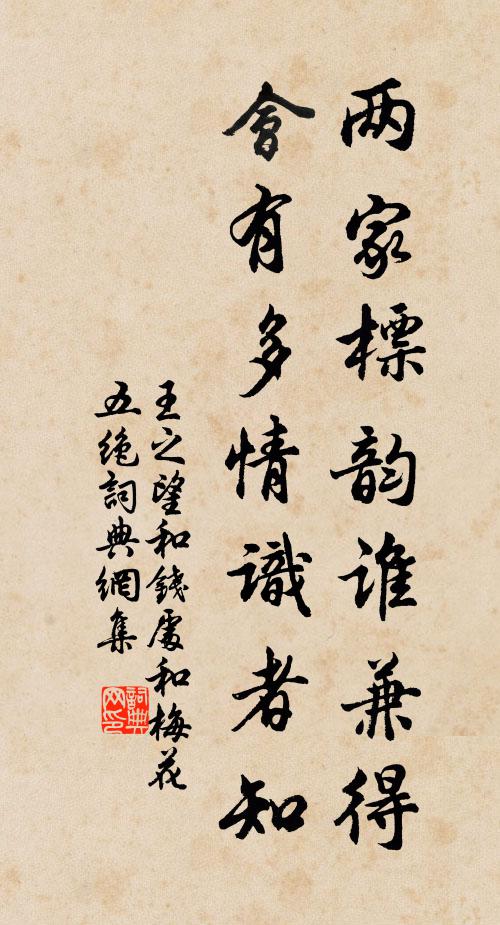 两家標韵誰兼得
會有多情識者知
王之望和錢處和梅花
五絶詞典網集
詞典
网印